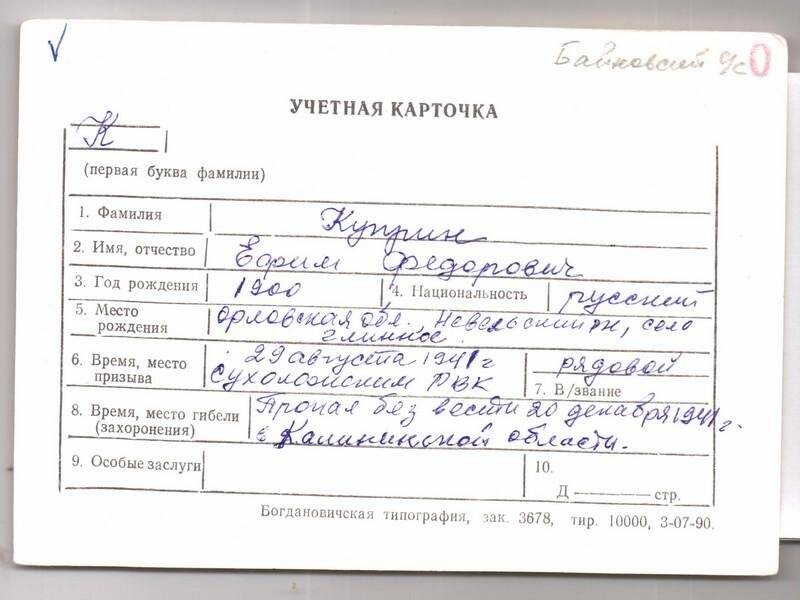 Байновский с/с О
УЧЕТНАЯ КАРТОЧКА
К
(первая буква фамилии)
1. Фамилия Куприн
2. Имя, отчество Ефрим Федорович
3. Год рождения 1900 4. Национальность русский
5. Место рождения Орловская обл. Невельский рн, село Глинное
6. Время, место призыва 29 августа 1941 г Сухоложским РВК рядовой 7. В/звание
8. Время, место гибели (захоронения) Пропал без вести 20 декабря 1941 г. в Калининской области.
9. Особые заслуги 10.
Д — стр.
Богдановичская типография, зак. 3678, тир. 10000, 3-07-90.